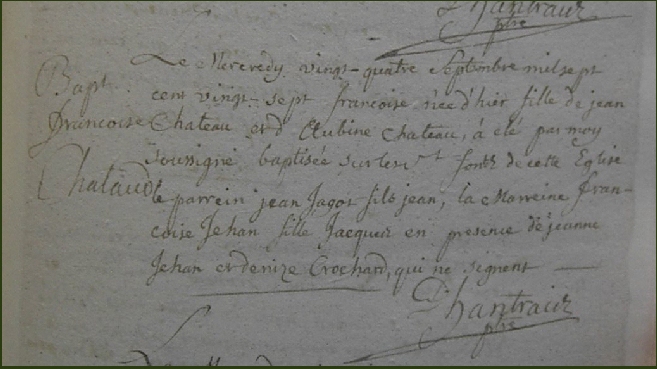 Dhantraiz
ptre
Bapt.
francoise
Chataud
Le Mercredy vingt-quatre Septembre mil sept
cent vingt-sept francoise née d'hier fille de jean
Chateau et d'Aubine Chateau, à eté par moy
soussigné baptisée sur les sts fonts de cette Eglise
le parrein jean Jagot fils jean, la Marreine fran-
coise Jehan fille Jacques en presence de jeanne
Jehan et denize Crochard, qui ne signent
Dhantraiz
ptre